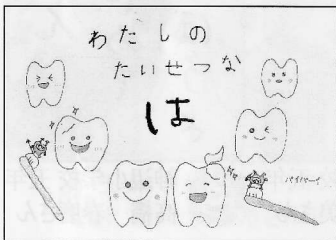 わたしの
たいせつな
は
バイバーイ